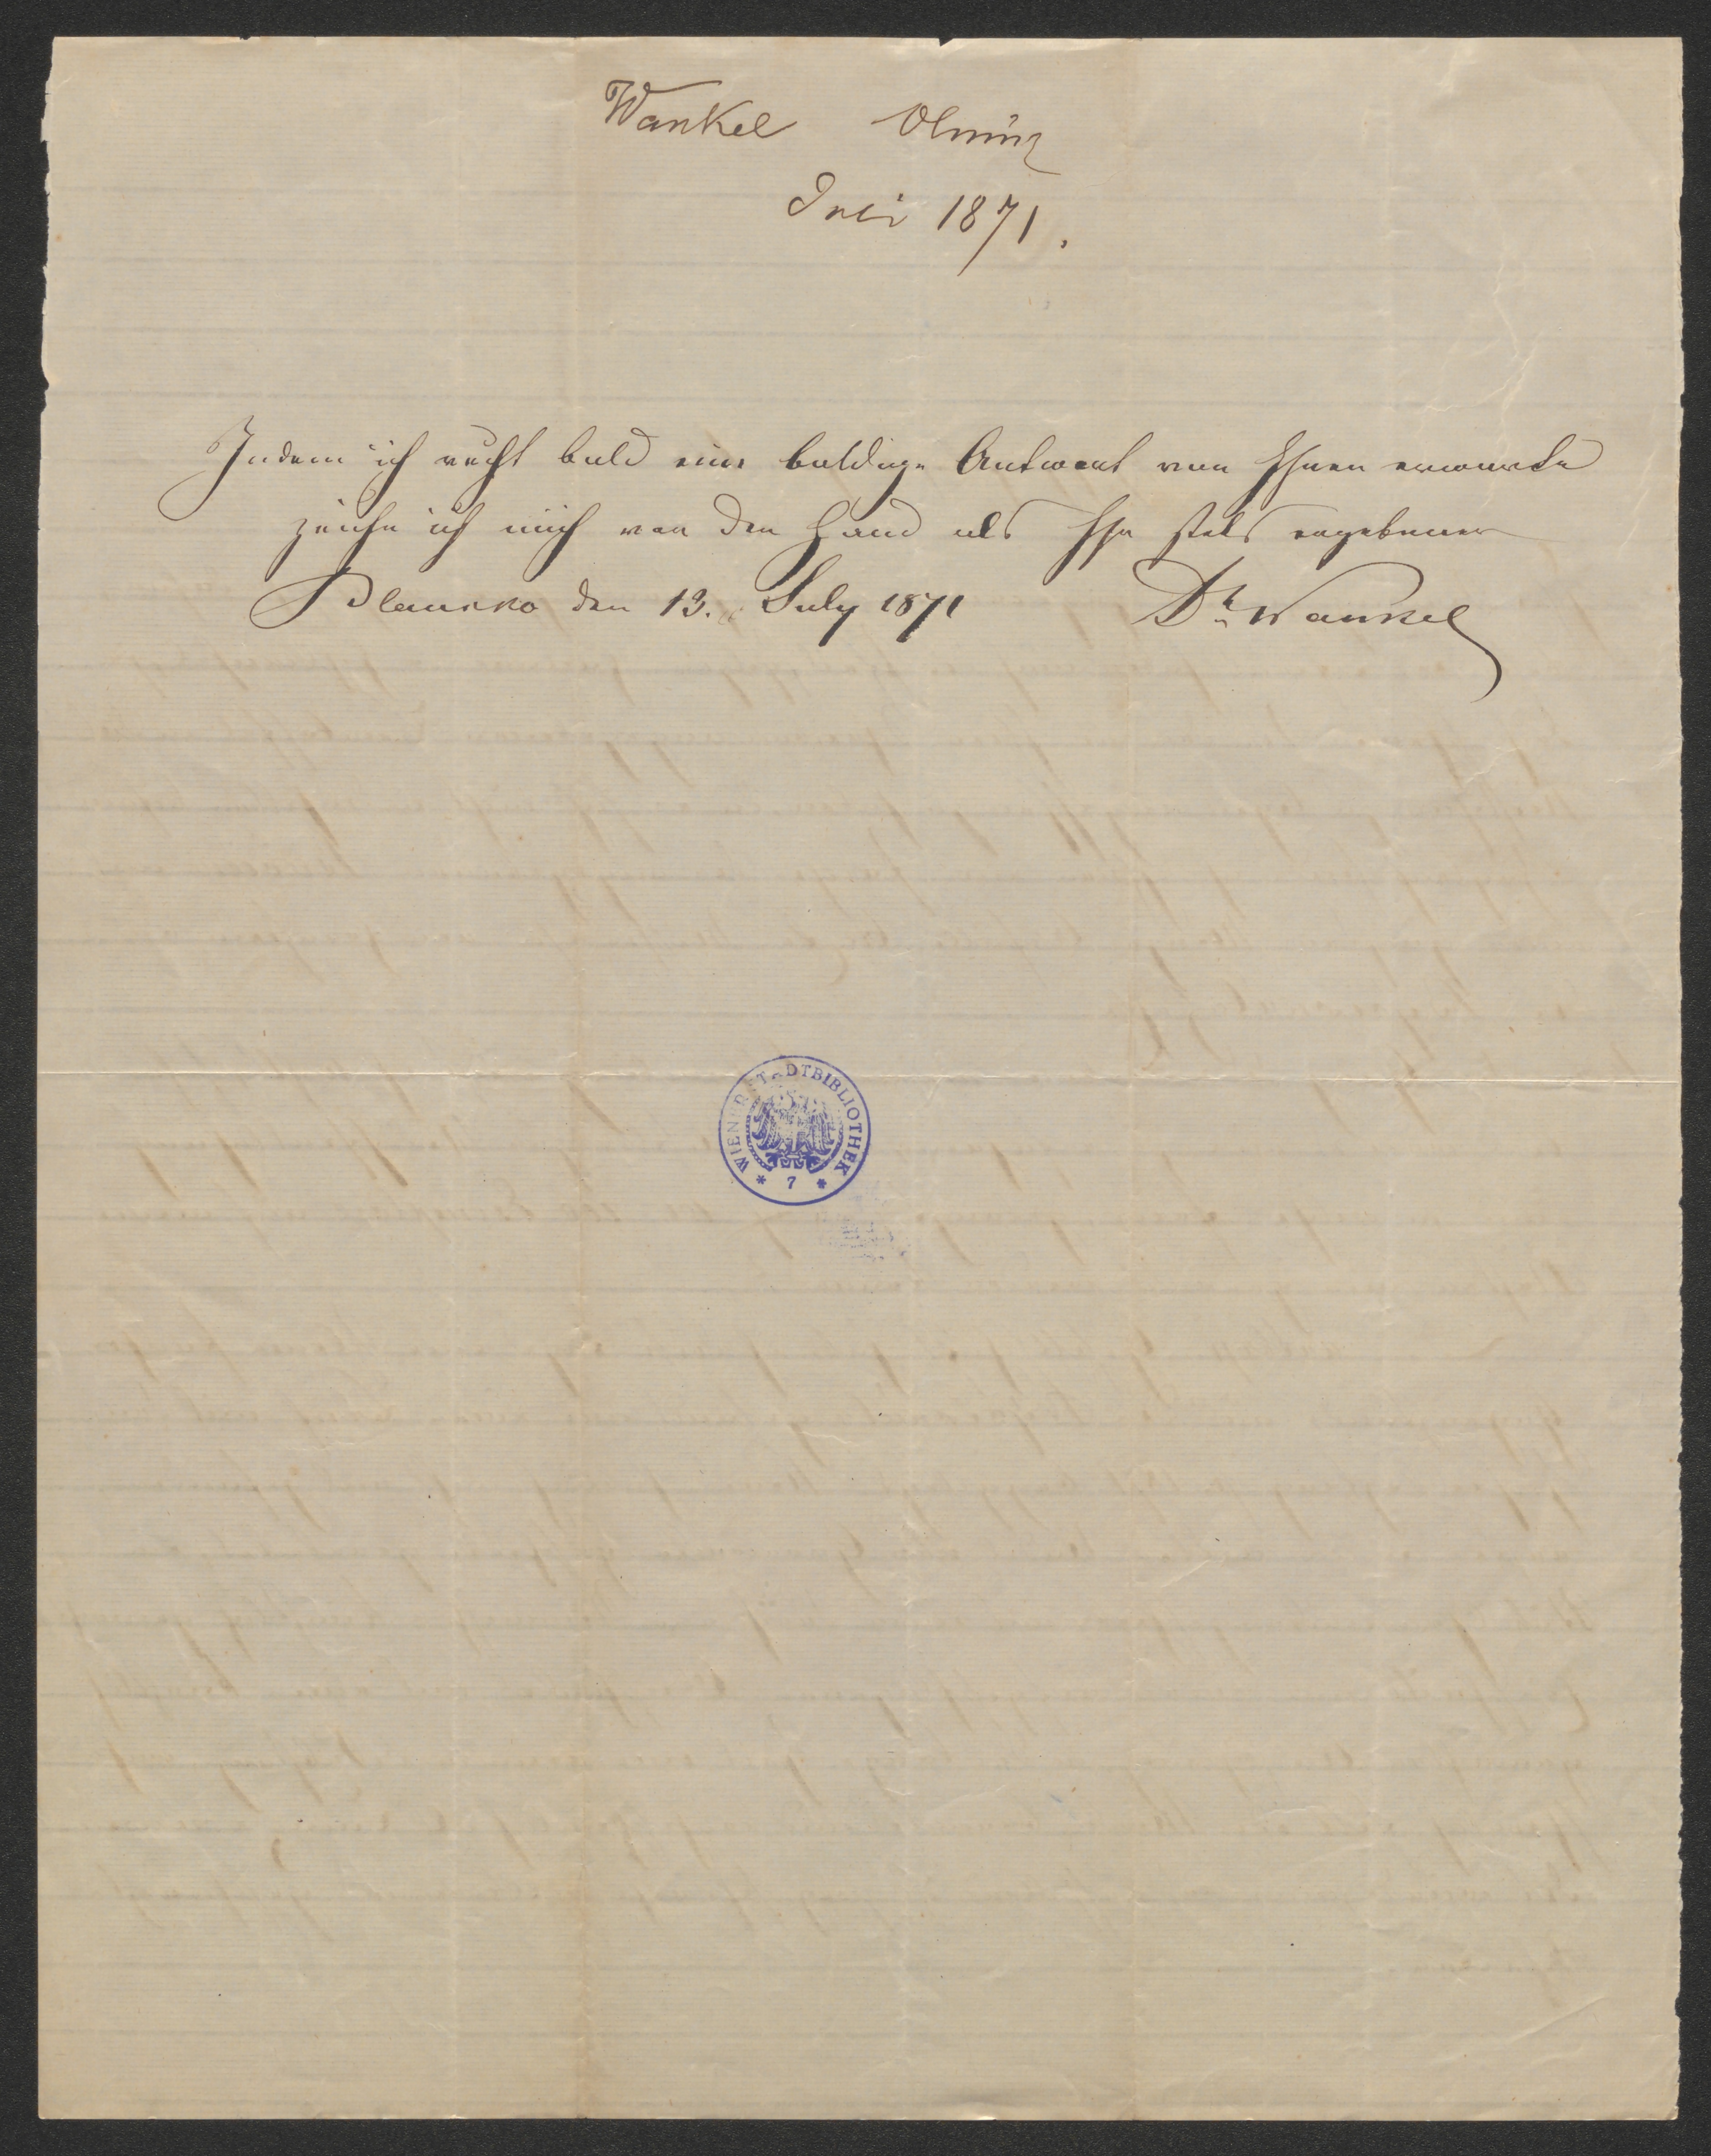 Wankel Olmüz
Juli 1871.
Indem ich recht bald eine baldige Antwort von Ihnen erwarte
zeichne ich mich von der Hand als Ihr stets ergebener
Blansko den 13. July 1871 Dr Wankel
WIENER STADTBIBLIOTHEK
* 7 *